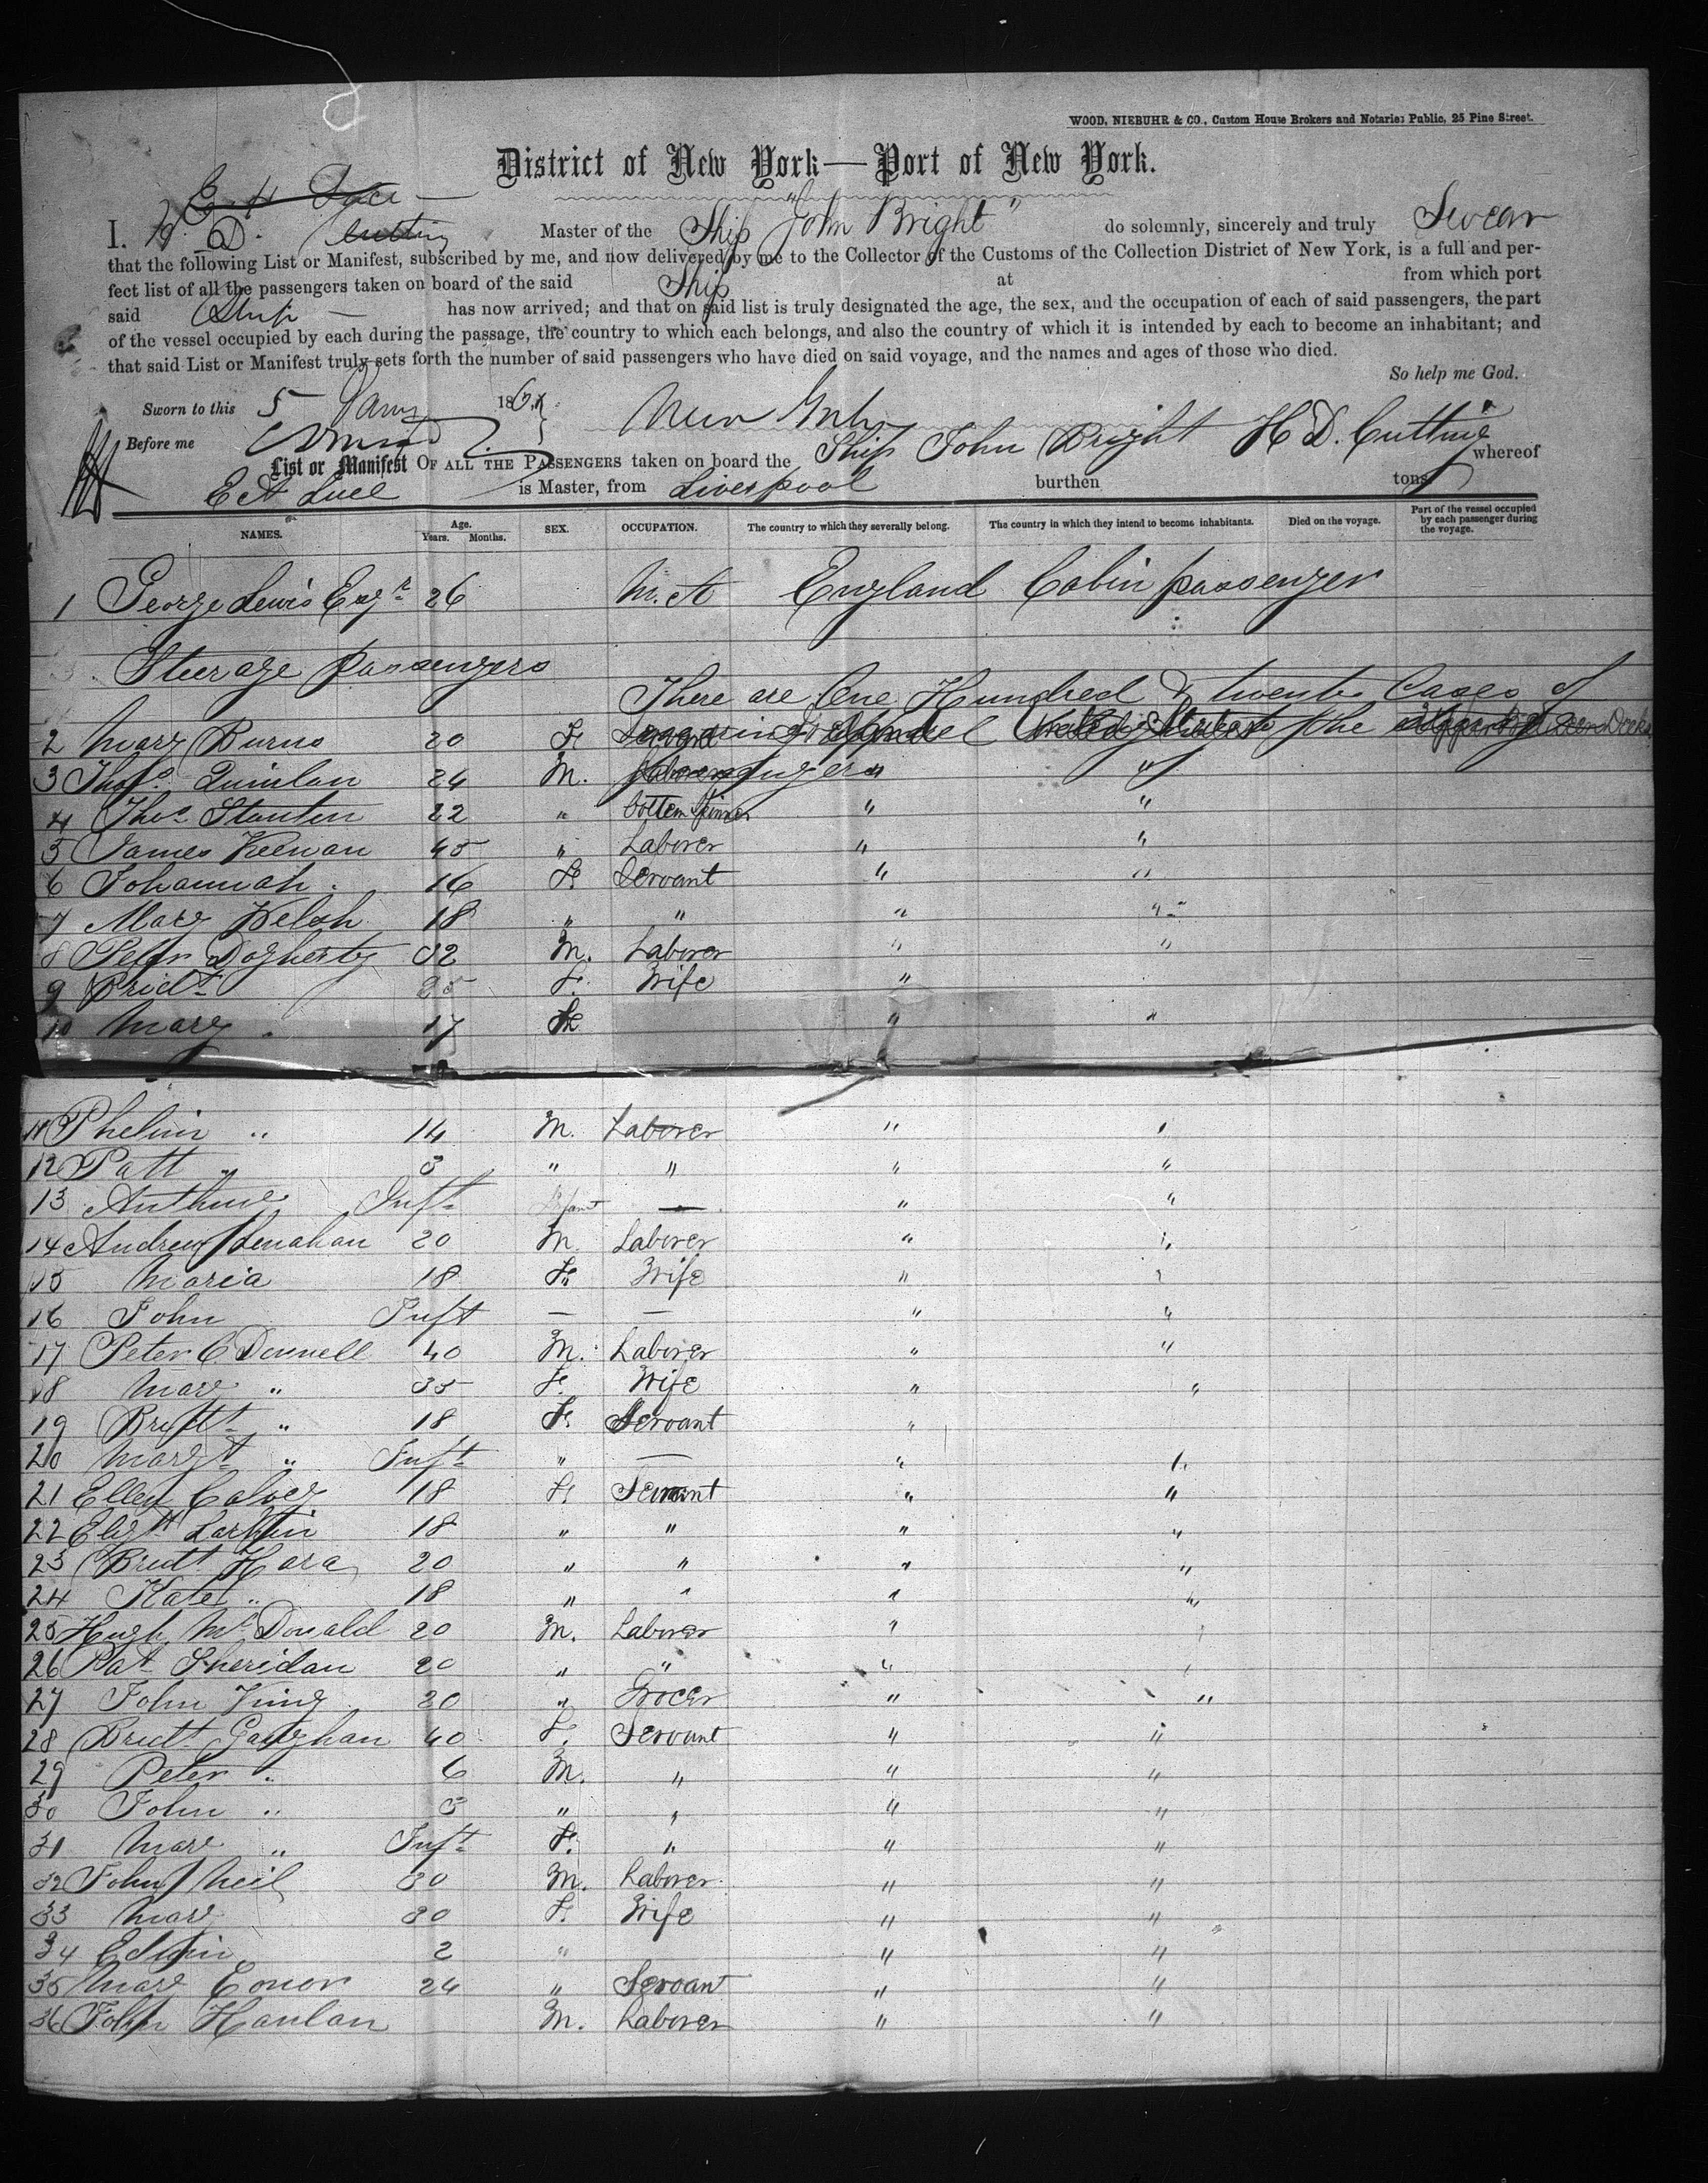 WOOD, NIEBUHR & CO., Custom House Brokers and Notaries Public, 25 Pine Street.
District of New York—Port of New York.
I, H. D. Cutting Master of the Ship "John Bright" do solemnly, sincerely and truly Swear
that the following List or Manifest, subscribed by me, and now delivered by me to the Collector of the Customs of the Collection District of New York, is a full and per-
fect list of all the passengers taken on board of the said Ship at from which port
said Ship has now arrived; and that on said list is truly designated the age, the sex, and the occupation of each of said passengers, the part
of the vessel occupied by each during the passage, the country to which each belongs, and also the country of which it is intended by each to become an inhabitant; and
that said List or Manifest truly sets forth the number of said passengers who have died on said voyage, and the names and ages of those who died.
So help me God.
Sworn to this 5 Jany 186
Before me
List or Manifest OF ALL THE PASSENGERS taken on board the Ship John Bright H D. Cutting whereof
is Master, from Liverpool burthen tons
NAMES. Age. Years. Months. SEX. OCCUPATION. The country to which they severally belong. The country in which they intend to become inhabitants. Died on the voyage. Part of the vessel occupied by each passenger during the voyage.
1 George Lewis Esqr 26 England Cabin passenger
Steerage passengers
There are One Hundred & twenty Cases of
2 Mary Burns 20 F
3 Thos. Quinlan 24 M. " "
4 Thos Stanton 22 " Cotton Spinner " "
5 James Keenan 45 " Laborer " "
6 Johannah 16 F. Servant " "
7 Mary Welsh 18 " " " "
8 Peter Dogherty 32 M. Laborer " "
9 Bridt 25 F. Wife "
10 Mary 17 " "
11 Phelim " 14 M. Laborer " "
12 Patt " 3 " " " "
13 Inft Infant — " "
14 Andrew Lenahan 20 M. Laborer " "
15 Maria 18 F. Wife " "
16 John Inft — — " "
17 Peter O'Donnell 40 M. Laborer " "
18 Mary " 35 F. Wife " "
19 Bridt " 18 F. Servant "
20 Margt " Inft " — " "
21 Ellen Calvey 18 F. Servant " "
22 Elizth Larkin 18 " " " "
23 Bridt Hara 20 " " " "
24 Kate " 18 " " " "
25 Hugh McDonald 20 M. Laborer " "
26 Pat Sheridan 20 " " " "
27 John King 20 " Grocer " "
28 Bridt Gaughan 40 F. Servant " "
29 Peter " 6 M. " " "
30 John " 3 " " " "
31 Mary " Inft F. " " "
32 John Neil 30 M. Laborer " "
33 Mary 30 F. Wife " "
34 2 " " "
35 Mary Conor 24 " Servant " "
36 John Hanlan M. Laborer " "